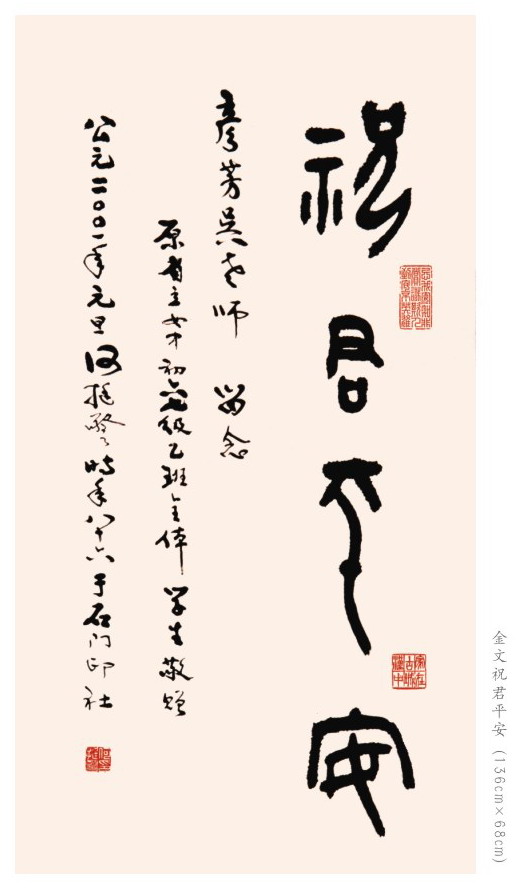 祝君平安
彦芳吴老师 留念
原省立女中初六七级乙班全体学生敬赠
公元二〇〇一年元旦 时年八十六于石门印社
金文祝君平安 (136cm×68cm)